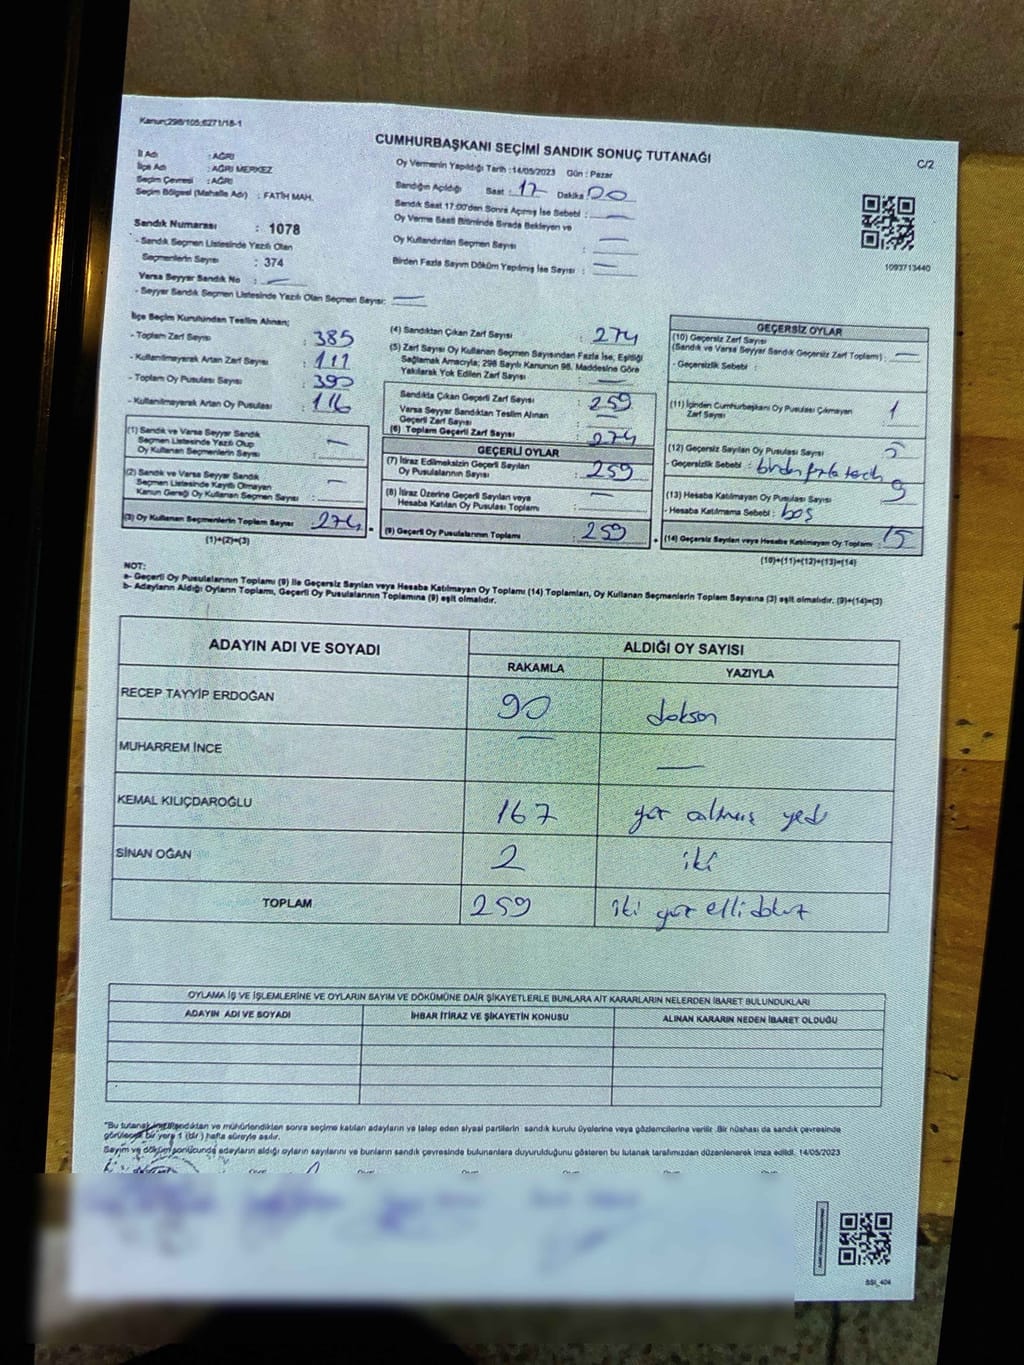 Kanun;298/105;6271/18-1
CUMHURBAŞKANI SEÇİMİ SANDIK SONUÇ TUTANAĞI
C/2
İl Adı : AĞRI
İlçe Adı : AĞRI MERKEZ
Seçim Çevresi : AĞRI
Seçim Bölgesi (Mahalle Adı) : FATİH MAH.
Oy Vermenin Yapıldığı Tarih :14/05/2023 Gün : Pazar
Sandığın Açıldığı Saat : 17 Dakika 00
Sandık Saat 17:00'den Sonra Açılmış İse Sebebi : —
Oy Verme Saati Bitiminde Sırada Bekleyen ve
Oy Kullandırılan Seçmen Sayısı : —
Birden Fazla Sayım Döküm Yapılmış İse Sayısı : —
1093713440
Sandık Numarası : 1078
- Sandık Seçmen Listesinde Yazılı Olan
Seçmenlerin Sayısı : 374
Varsa Seyyar Sandık No : —
- Seyyar Sandık Seçmen Listesinde Yazılı Olan Seçmen Sayısı: —
İlçe Seçim Kurulundan Teslim Alınan;
- Toplam Zarf Sayısı : 385
- Kullanılmayarak Artan Zarf Sayısı : 111
- Toplam Oy Pusulası Sayısı : 390
- Kullanılmayarak Artan Oy Pusulası : 116
(1) Sandık ve Varsa Seyyar Sandık
Seçmen Listesinde Yazılı Olup
Oy Kullanan Seçmenlerin Sayısı : —
(2) Sandık ve Varsa Seyyar Sandık
Seçmen Listesinde Kayıtlı Olmayan
Kanun Gereği Oy Kullanan Seçmen Sayısı : —
(3) Oy Kullanan Seçmenlerin Toplam Sayısı : 274
(1)+(2)=(3)
(4) Sandıktan Çıkan Zarf Sayısı : 274
(5) Zarf Sayısı Oy Kullanan Seçmen Sayısından Fazla İse, Eşitliği
Sağlamak Amacıyla; 298 Sayılı Kanunun 98. Maddesine Göre
Yakılarak Yok Edilen Zarf Sayısı : —
Sandıkta Çıkan Geçerli Zarf Sayısı : 259
Varsa Seyyar Sandıktan Teslim Alınan
Geçerli Zarf Sayısı : —
(6) Toplam Geçerli Zarf Sayısı : 274
GEÇERLİ OYLAR
(7) İtiraz Edilmeksizin Geçerli Sayılan
Oy Pusulalarının Sayısı : 259
(8) İtiraz Üzerine Geçerli Sayılan veya
Hesaba Katılan Oy Pusulası Toplamı : —
(9) Geçerli Oy Pusulalarının Toplamı : 259
GEÇERSİZ OYLAR
(10) Geçersiz Zarf Sayısı
(Sandık ve Varsa Seyyar Sandık Geçersiz Zarf Toplamı) : —
- Geçersizlik Sebebi :
(11) İçinden Cumhurbaşkanı Oy Pusulası Çıkmayan
Zarf Sayısı : 1
(12) Geçersiz Sayılan Oy Pusulası Sayısı : 5
- Geçersizlik Sebebi : birden fazla tercih
(13) Hesaba Katılmayan Oy Pusulası Sayısı : 9
- Hesaba Katılmama Sebebi : boş
(14) Geçersiz Sayılan veya Hesaba Katılmayan Oy Toplamı : 15
(10)+(11)+(12)+(13)=(14)
NOT:
a- Geçerli Oy Pusulalarının Toplamı (9) ile Geçersiz Sayılan veya Hesaba Katılmayan Oy Toplamı (14) Toplamları, Oy Kullanan Seçmenlerin Toplam Sayısına (3) eşit olmalıdır. (9)+(14)=(3)
b- Adayların Aldığı Oyların Toplamı, Geçerli Oy Pusulalarının Toplamına (9) eşit olmalıdır.
ADAYIN ADI VE SOYADI ALDIĞI OY SAYISI
RAKAMLA YAZIYLA
RECEP TAYYİP ERDOĞAN 90 doksan
MUHARREM İNCE — —
KEMAL KILIÇDAROĞLU 167 yüz altmış yedi
SİNAN OĞAN 2 iki
TOPLAM 259 iki yüz elli dokuz
OYLAMA İŞ VE İŞLEMLERİNE VE OYLARIN SAYIM VE DÖKÜMÜNE DAİR ŞİKAYETLERLE BUNLARA AİT KARARLARIN NELERDEN İBARET BULUNDUKLARI
ADAYIN ADI VE SOYADI İHBAR İTİRAZ VE ŞİKAYETİN KONUSU ALINAN KARARIN NEDEN İBARET OLDUĞU
"Bu tutanak imzalandıktan ve mühürlendikten sonra seçime katılan adayların ve talep eden siyasi partilerin sandık kurulu üyelerine veya gözlemcilerine verilir. Bir nüshası da sandık çevresinde
görülecek bir yere 1 (bir) hafta süreyle asılır.
Sayım ve döküm sonucunda adayların aldığı oyların sayılarını ve bunların sandık çevresinde bulunanlara duyurulduğunu gösteren bu tutanak tarafımızdan düzenlenerek imza edildi. 14/05/2023
SSI_404